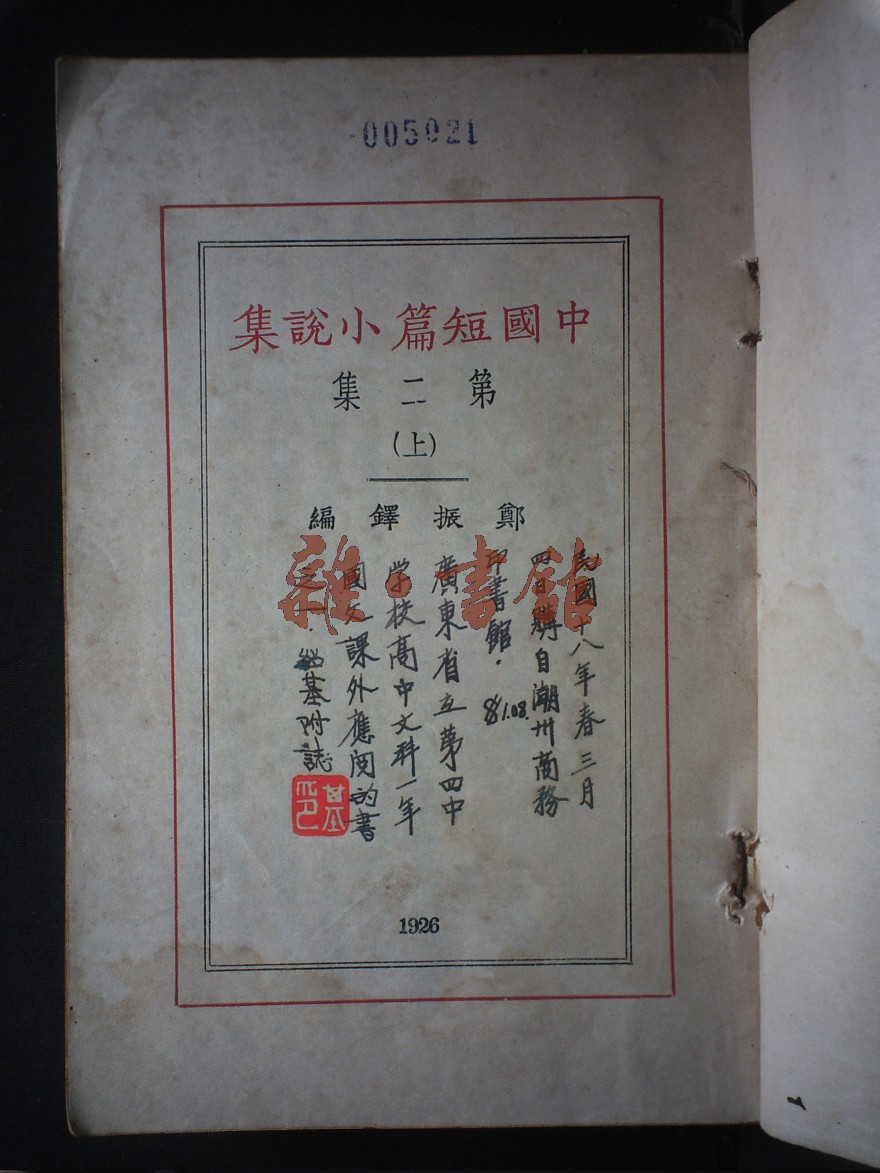 005021
中國短篇小說集
第二集
(上)
鄭振鐸編
民國十八年春三月
四日購自潮州商務
印書館. 81.08.
廣東省立第四中
学校高中文科一年
國文課外應閱的書
之一. 基附誌
基印
雜·書館
1926